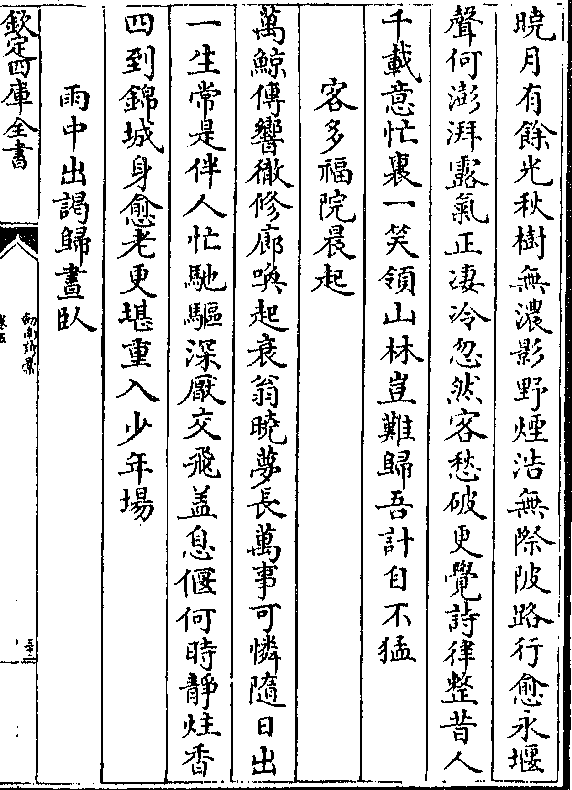 曉月有餘光秋樹無濃影野煙浩無際陂路行愈永堰
聲何澎湃露氣正凄冷忽然客愁破更覺詩律整昔人
千載意忙裏一笑領山林豈難歸吾計自不猛
客多福院晨起
萬鯨傳響徹修廊喚起衰翁曉夢長萬事可憐隨日出
一生常是伴人忙馳驅深厭交飛盖息偃何時靜炷香
四到錦城身愈老更堪重入少年場
雨中出謁歸晝臥
欽定四庫全書
劍南詩槀
卷五